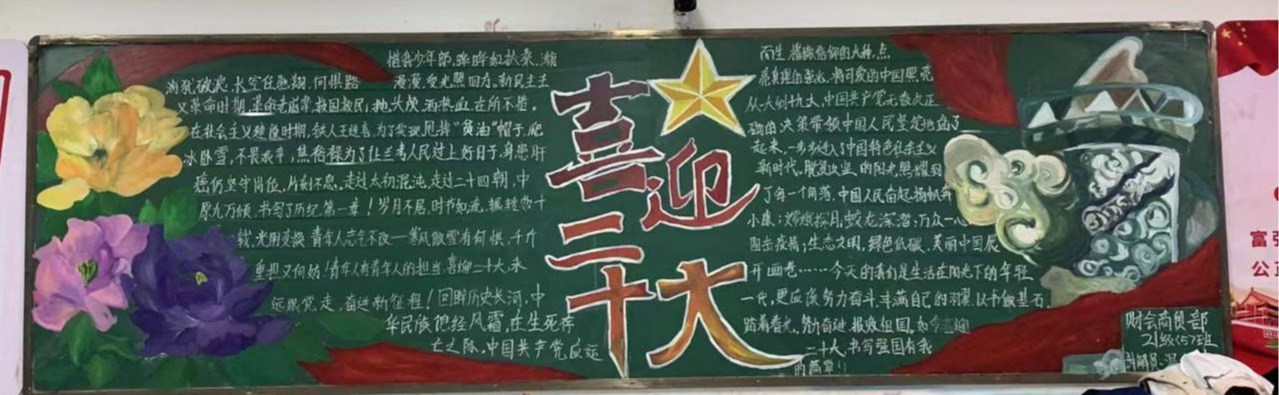 惜我少年郎,晔晔如扶桑,瀚
海犹破浪,长空任翱翔,何惧路
漫漫,受光照四方,新民主主
义革命时期,革命者崛常,救国救民,抛头颅,洒热血,在所不惜。
在社会主义建设时期,铁人王进喜,为了实现甩掉"贫油"帽子,爬
冰卧雪,不畏艰辛,焦裕禄为了让兰考人民过上好日子,身患肝
癌仍坚守岗位,片刻不息,走过太初混沌,走过二十四朝,中
原九万倾,书写了历纪第一章!岁月不居,时节如流,辗转数十
载,光阴变换,青年人志气不改一寒风傲雪有何惧,千斤
重担又何妨!青年人有青年人的担当,喜迎二十大,永
远跟党走,奋进新征程!回眸历史长河,中
华民族饱经风霜,在生死存
亡之际,中国共产党应运
喜迎
二十大
而生,播撒信仰的火种,点
亮真理的
将可爱的中国照亮
从一大到十九大,中国共产党无数次正
确的决策带领中国人民坚定地站了
起来,一步步进入了中国特色社会主义
新时代。脱贫攻坚的阳光照耀到
了每一个角落,中国人民奋起扬帆奔
小康;嫦娥探月,蛟龙深潜;万众一心
阻击疫情;生态文明,绿色低碳,美丽中国展
开画卷……今天的我们是生活在阳光下的年轻
一代,更应该努力奋斗,丰满自己的羽翼,以书做基石,
踏着春光,努力奋进,报效祖国,如今喜迎
二十大,书写强国有我
的篇章!!
财会商贸部
21级(5)班
富强
公正